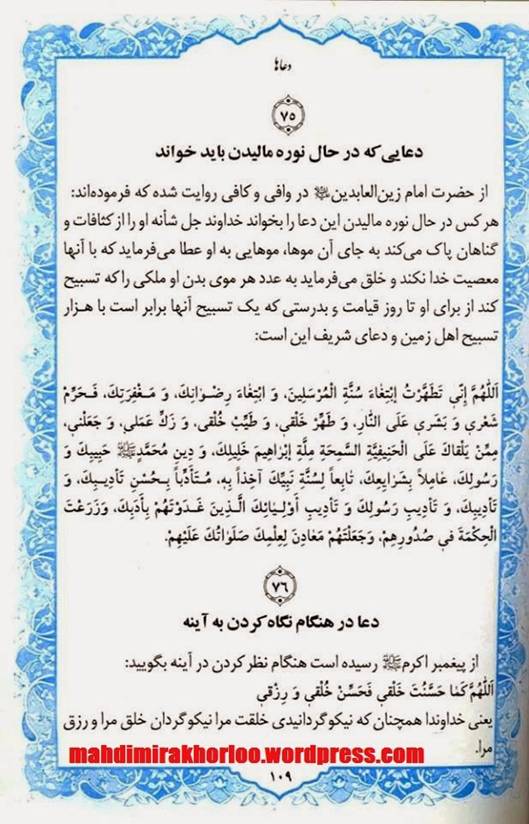 دعاها
۷۵
دعایی که در حال نوره مالیدن باید خواند
از حضرت امام زین‌العابدین در وافی و کافی روایت شده که فرموده‌اند:
هر کس در حال نوره مالیدن این دعا را بخواند خداوند جل شأنه او را از کثافات و
گناهان پاک می‌کند به جای آن موها، موهایی به او عطا می‌فرماید که با آنها
معصیت خدا نکند و خلق می‌فرماید به عدد هر موی بدن او ملکی را که تسبیح
کند از برای او تا روز قیامت و بدرستی که یک تسبیح آنها برابر است با هزار
تسبیح اهل زمین و دعای شریف این است:
اَللّهُمَّ إِنّی تَطَهَّرْتُ إِبْتِغاءَ سُنَّةِ الْمُرْسَلِینَ، وَ ابْتِغاءَ رِضْوانِكَ، وَ مَغْفِرَتِكَ، فَحَرِّمْ
شَعْری وَ بَشَری عَلَی النّارِ، وَ طَهِّرْ خَلْقی، وَ طَیِّبْ خُلْقی، وَ زَكِّ عَمَلی، وَ جَعَلْنی،
مِمَّنْ یَلْقاكَ عَلَی الْحَنِیفِیَّةِ السَّمْحَةِ مِلَّةِ إِبْراهِیمَ خَلِیلِكَ، وَ دِینِ مُحَمَّدٍ ﷺ حَبِیبِكَ وَ
رَسُولِكَ، عامِلاً بِشَرایِعِكَ، تابِعاً لِسُنَّةِ نَبِیِّكَ آخِذاً بِهِ، مُتَأَدِّباً بِحُسْنِ تَأْدِیبِكَ، وَ
تَأْدِیبِكَ، وَ تَأْدِیبِ رَسُولِكَ وَ تَأْدِیبِ أَوْلِیائِكَ الَّذِینَ غَدَوْتَهُمْ بِأَدَبِكَ، وَزَرَعْتَ
الْحِكْمَةَ فی صُدُورِهِمْ، وَجَعَلْتَهُمْ مَعادِنَ لِعِلْمِكَ صَلَواتُكَ عَلَیْهِمْ.
۷۶
دعا در هنگام نگاه کردن به آینه
از پیغمبر اکرم ﷺ رسیده است هنگام نظر کردن در آینه بگویید:
اَللّهُمَّ كَما حَسَّنْتَ خَلْقی فَحَسِّنْ خُلْقی وَ رِزْقی
یعنی خداوندا همچنان که نیکوگردانیدی خلقت مرا نیکوگردان خلق مرا و رزق
مرا.
mahdimirakhorloo.wordpress.com
۱۰۹